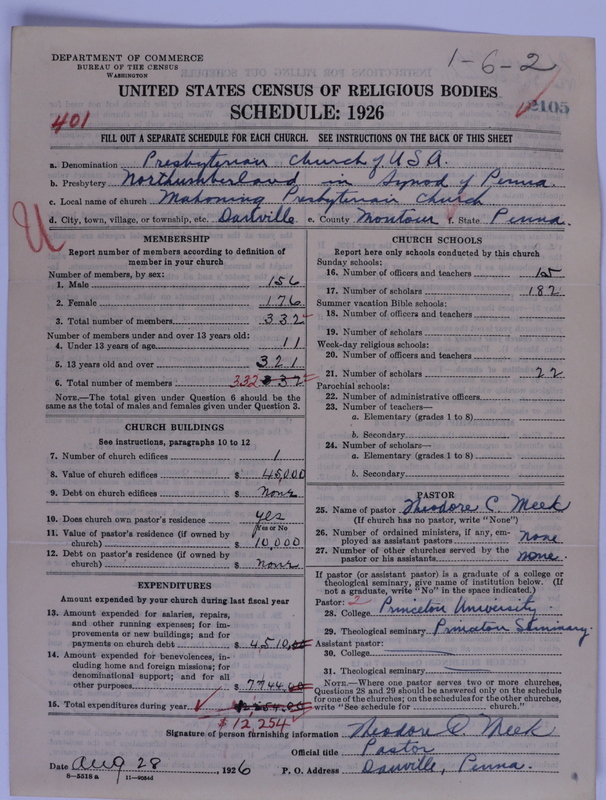 DEPARTMENT OF COMMERCE
BUREAU OF THE CENSUS
WASHINGTON
1-6-2
UNITED STATES CENSUS OF RELIGIOUS BODIES
SCHEDULE: 1926
2105
401
FILL OUT A SEPARATE SCHEDULE FOR EACH CHURCH. SEE INSTRUCTIONS ON THE BACK OF THIS SHEET
a. Denomination Presbyterian Church of USA.
b. Presbytery Northumberland in Synod of Penna.
c. Local name of church Mahoning Presbyterian Church
d. City, town, village, or township, etc. Danville e. County Montour f. State Penna.
U
MEMBERSHIP
Report number of members according to definition of member in your church
Number of members, by sex:
1. Male 156
2. Female 176
3. Total number of members 332
Number of members under and over 13 years old:
4. Under 13 years of age 11
5. 13 years old and over 321
6. Total number of members 332
NOTE.—The total given under Question 6 should be
same as the total of males and females given under Question 3.
CHURCH BUILDINGS
See instructions, paragraphs 10 to 12
7. Number of church edifices 1
8. Value of church edifices $ 45,000
9. Debt on church edifices $ None
10. Does church own pastor's residence yes
Yes or No
11. Value of pastor's residence (if owned by
church) $ 10,000
12. Debt on pastor's residence (if owned by
church) $ None
EXPENDITURES
Amount expended by church during last fiscal year
13. Amount expended for salaries, repairs,
and other running expenses; for im-
provements or new buildings; and for
payments on church debt $ 4,510.00
14. Amount expended for benevolences, in-
cluding home and foreign missions; for
denominational support; and for all
other purposes $ 7744.00
15. Total expenditures during year $ 12254.00
$12 254
CHURCH SCHOOLS
Report here only schools conducted by this church
Sunday schools:
16. Number of officers and teachers 15
17. Number of scholars 182
Summer vacation Bible schools:
18. Number of officers and teachers
19. Number of scholars
Week-day religious schools:
20. Number of officers and teachers
21. Number of scholars 22
Parochial schools:
22. Number of administrative officers
23. Number of teachers—
a. Elementary (grades 1 to 8)
b. Secondary
24. Number of scholars—
a. Elementary (grades 1 to 8)
b. Secondary
PASTOR
25. Name of pastor Theodore C. Meek
(If church has no pastor, write "None")
26. Number of ordained ministers, if any, em-
ployed as assistant pastors none
27. Number of other churches served by the
pastor or his assistants none.
If pastor (or assistant pastor) is a graduate of a college or
theological seminary, give name of institution below. (If
not a graduate, write "No" in the space indicated.)
Pastor: 2
28. College Princeton University.
29. Theological seminary Princeton Seminary.
Assistant pastor:
30. College
31. Theological seminary
NOTE.—Where one pastor serves two or more churches,
Questions 28 and 29 should be answered only on the schedule
for one of the churches; on the schedules for the other churches,
write "See schedule for church."
Signature of person furnishing information Theodore C. Meek
Official title Pastor
Date Aug 28, 1926 P. O. Address Danville, Penna.
8-5518a 11-9054d